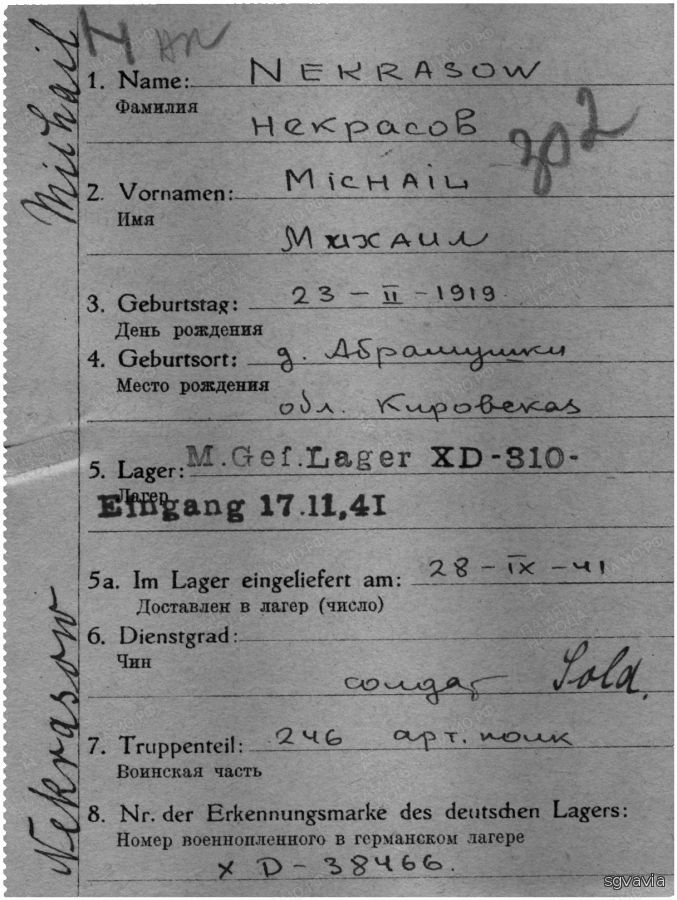 Michail
Nekrasow
1. Name: NEKRASOW
Фамилия
Некрасов
302
2. Vornamen: MICHAIL
Имя
Михаил
3. Geburtstag: 23 – II – 1919
День рождения
4. Geburtsort: д. Абрамушки
Место рождения
обл. Кировская
5. Lager: M.Gef.Lager XD-310-
Лагер
Eingang 17.11.41
5a. Im Lager eingeliefert am: 28 – IX – 41
Доставлен в лагер (число)
6. Dienstgrad:
Чин
солдат Sold.
7. Truppenteil: 246 арт. полк
Воинская часть
8. Nr. der Erkennungsmarke des deutschen Lagers:
Номер военнопленного в германском лагере
X D – 38466.
sgvavia